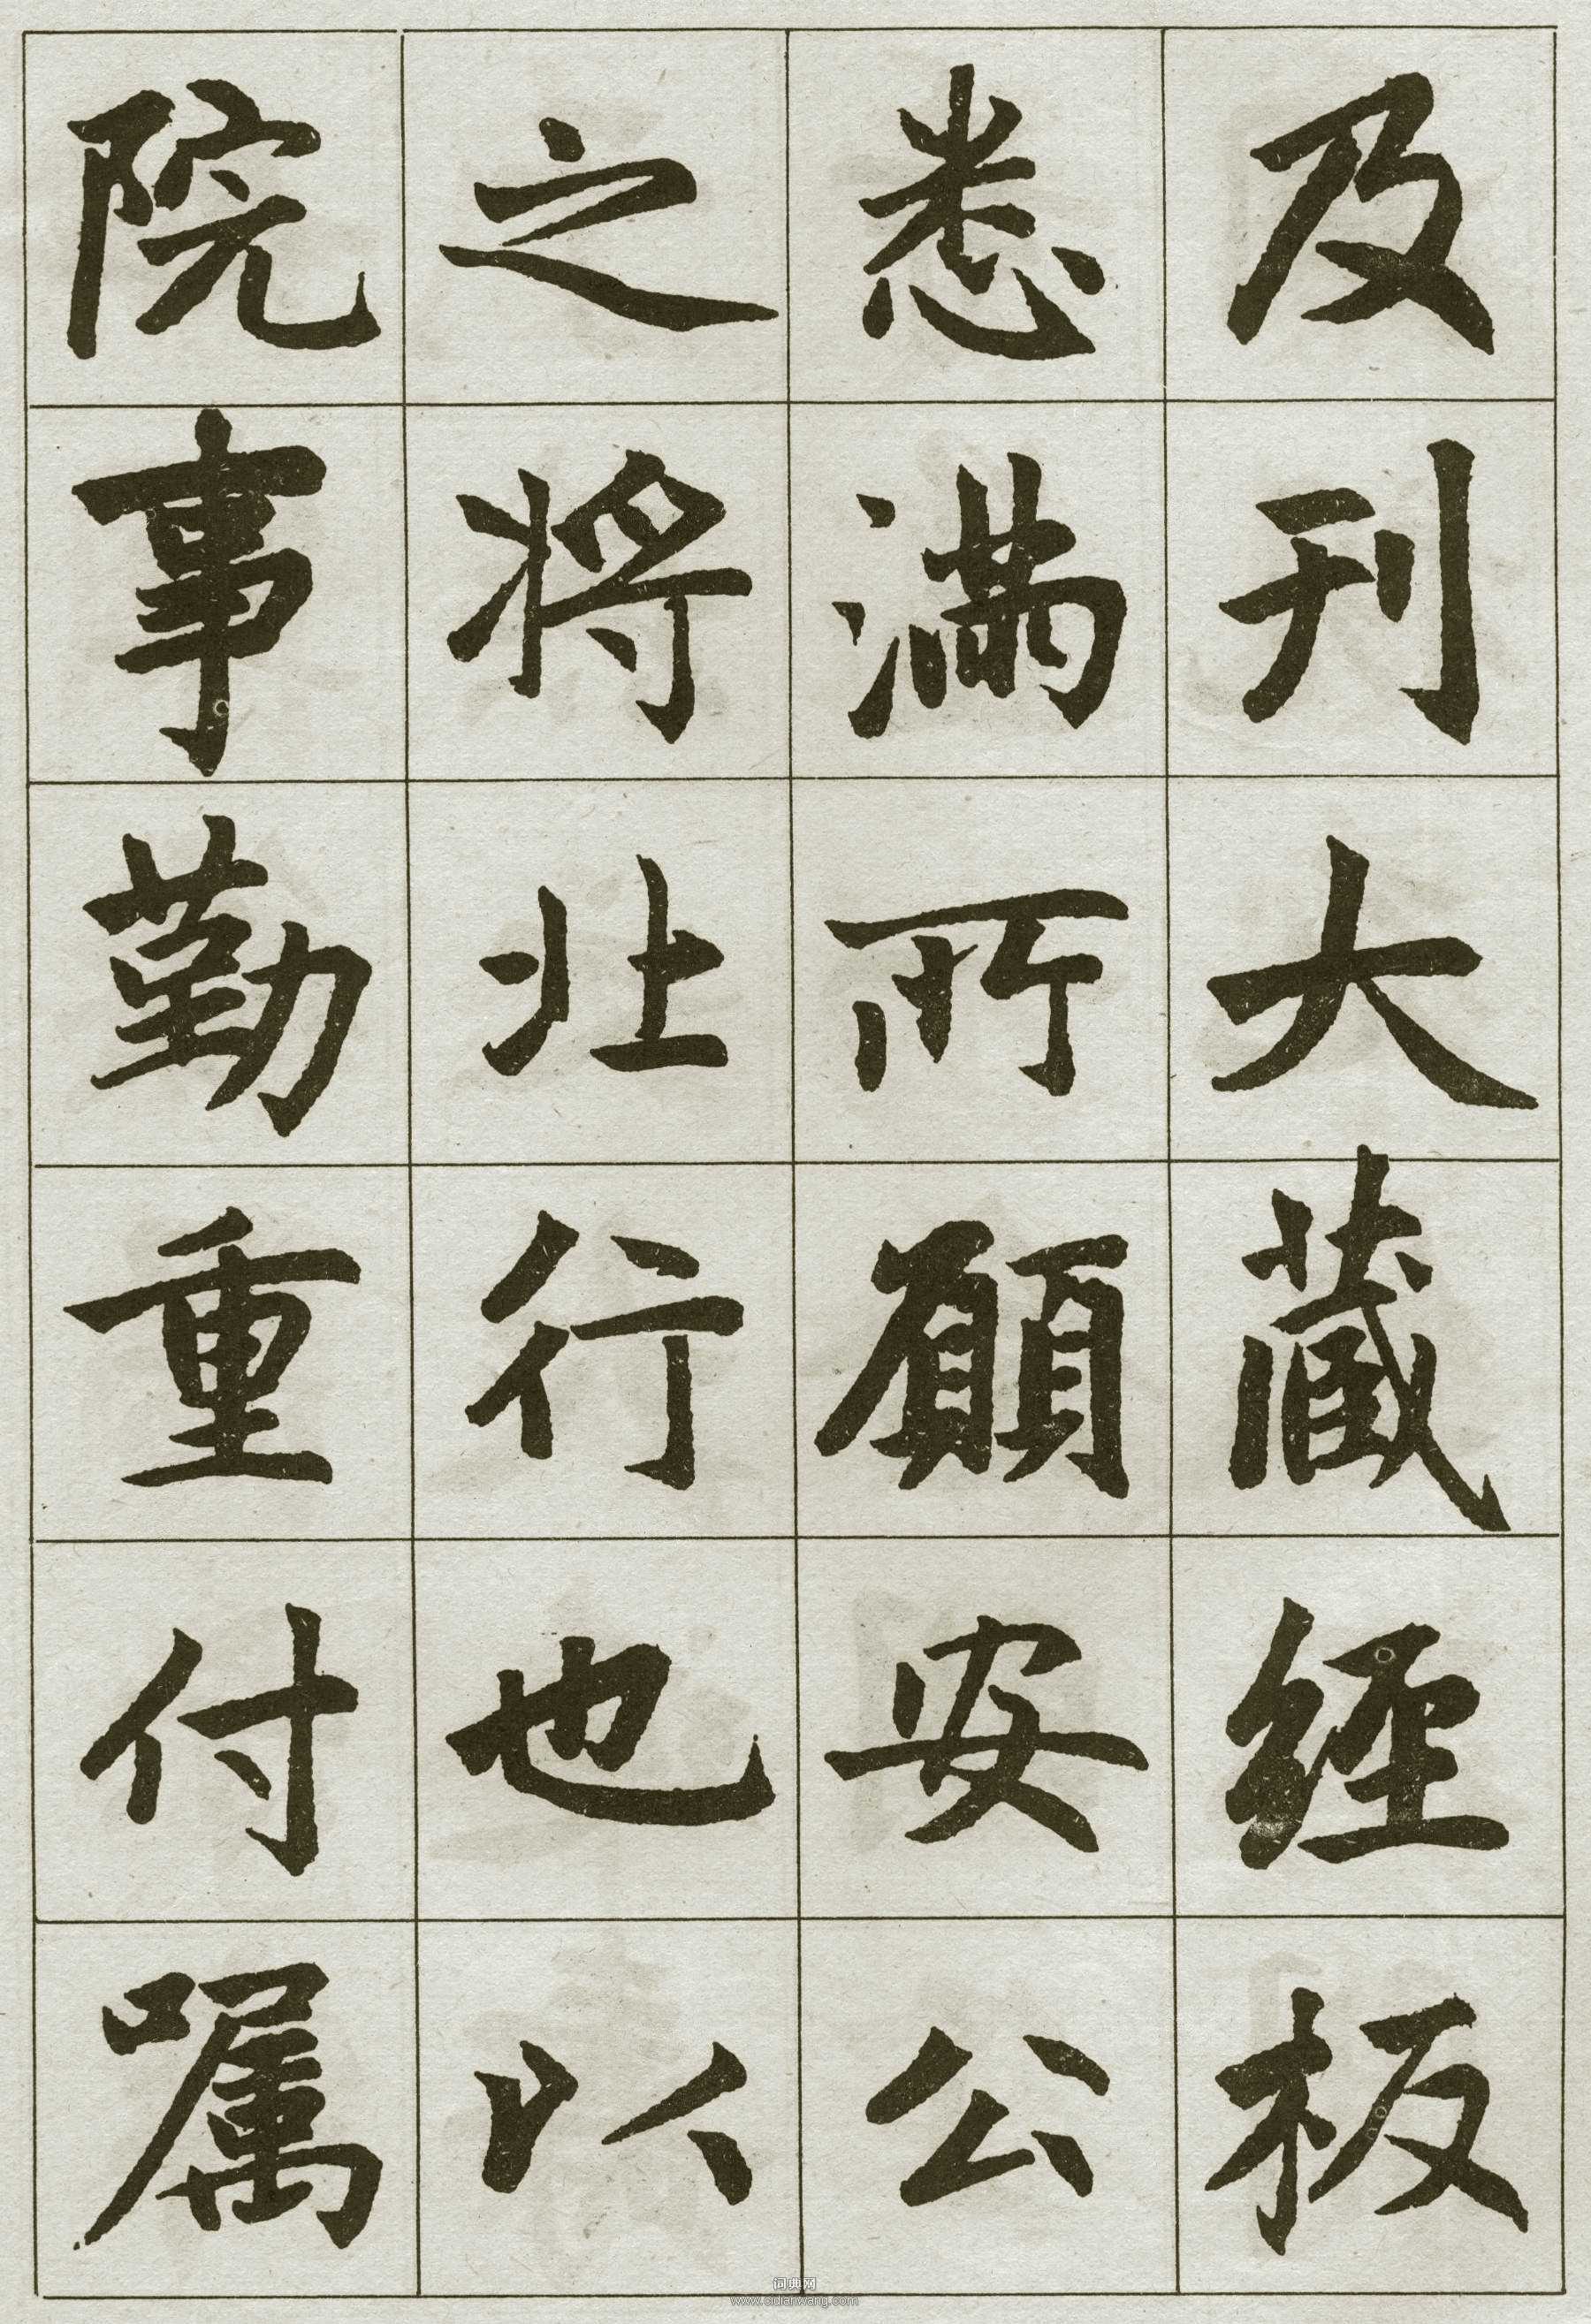 及刊大藏經板
悉滿所願安公
之將北行也以
院事勤重付囑
词典网
www.cidianwang.com